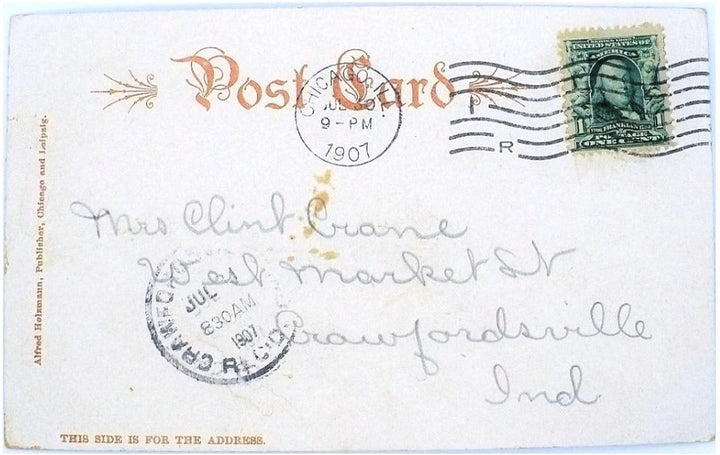 Post Card
CHICAGO, ILL.
JUL 30
9-PM
1907
R
SERIES 1902
UNITED STATES OF
AMERICA
1 FRANKLIN 1
POSTAGE
ONE CENT
Mrs Clint Crane
West Market St
Crawfordsville
Ind
CRAWFORD
JUL
830AM
1907
R
Alfred Holzmann, Publisher, Chicago and Leipzig.
THIS SIDE IS FOR THE ADDRESS.